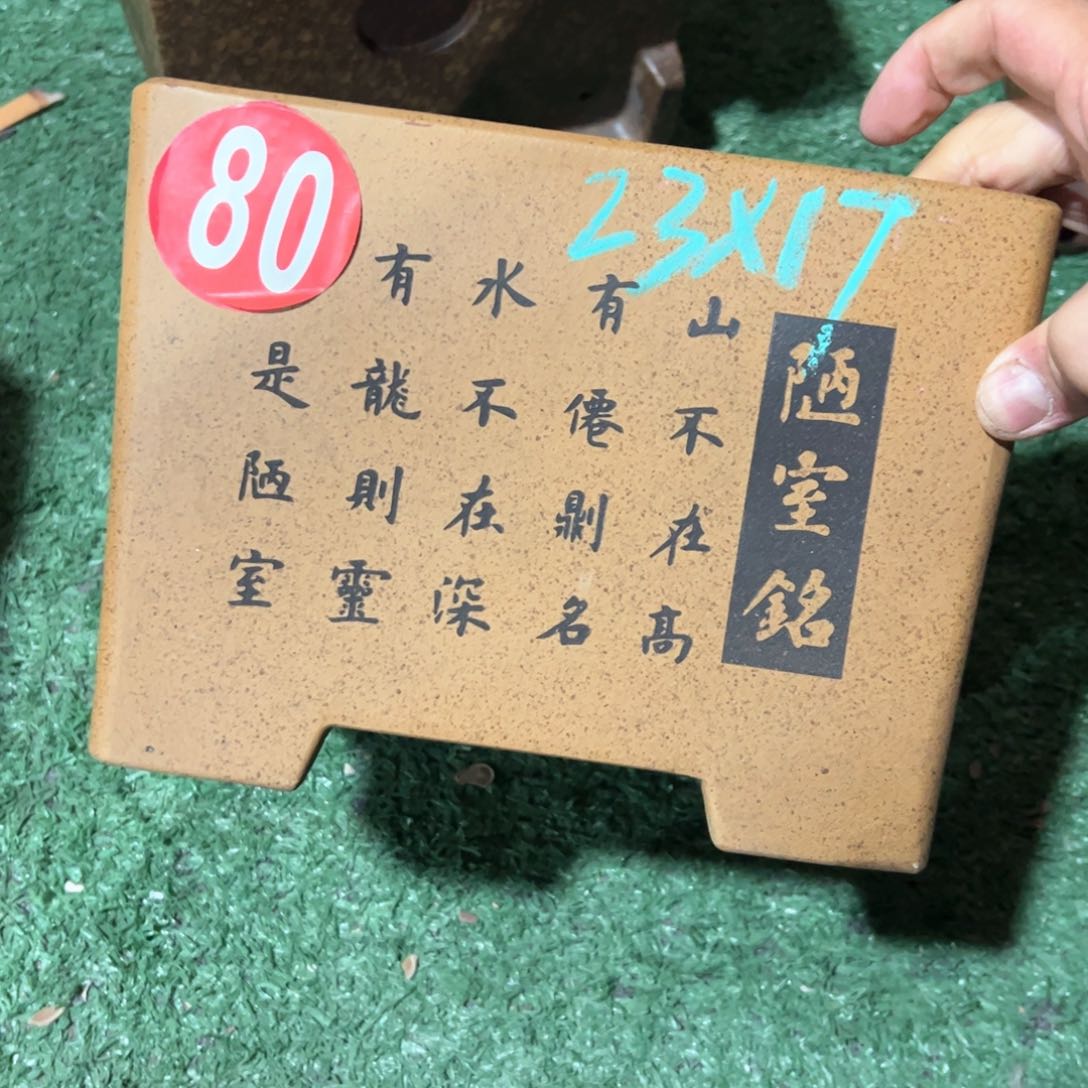 80
23X17
陋室銘
山不在高
有僊則名
水不在深
有龍則靈
是陋室